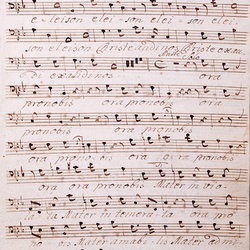 eleison eleison eleison
son eleison Christe audi nos Christe exau
di exaudi nos ora
pro nobis ora pro nobis ora pro nobis
pro nobis
ora pro nobis ora pro nobis
ora ora pro nobis Mater in vio
lata Mater intemerata ora pro
nobis Mater amabilis Mater admi